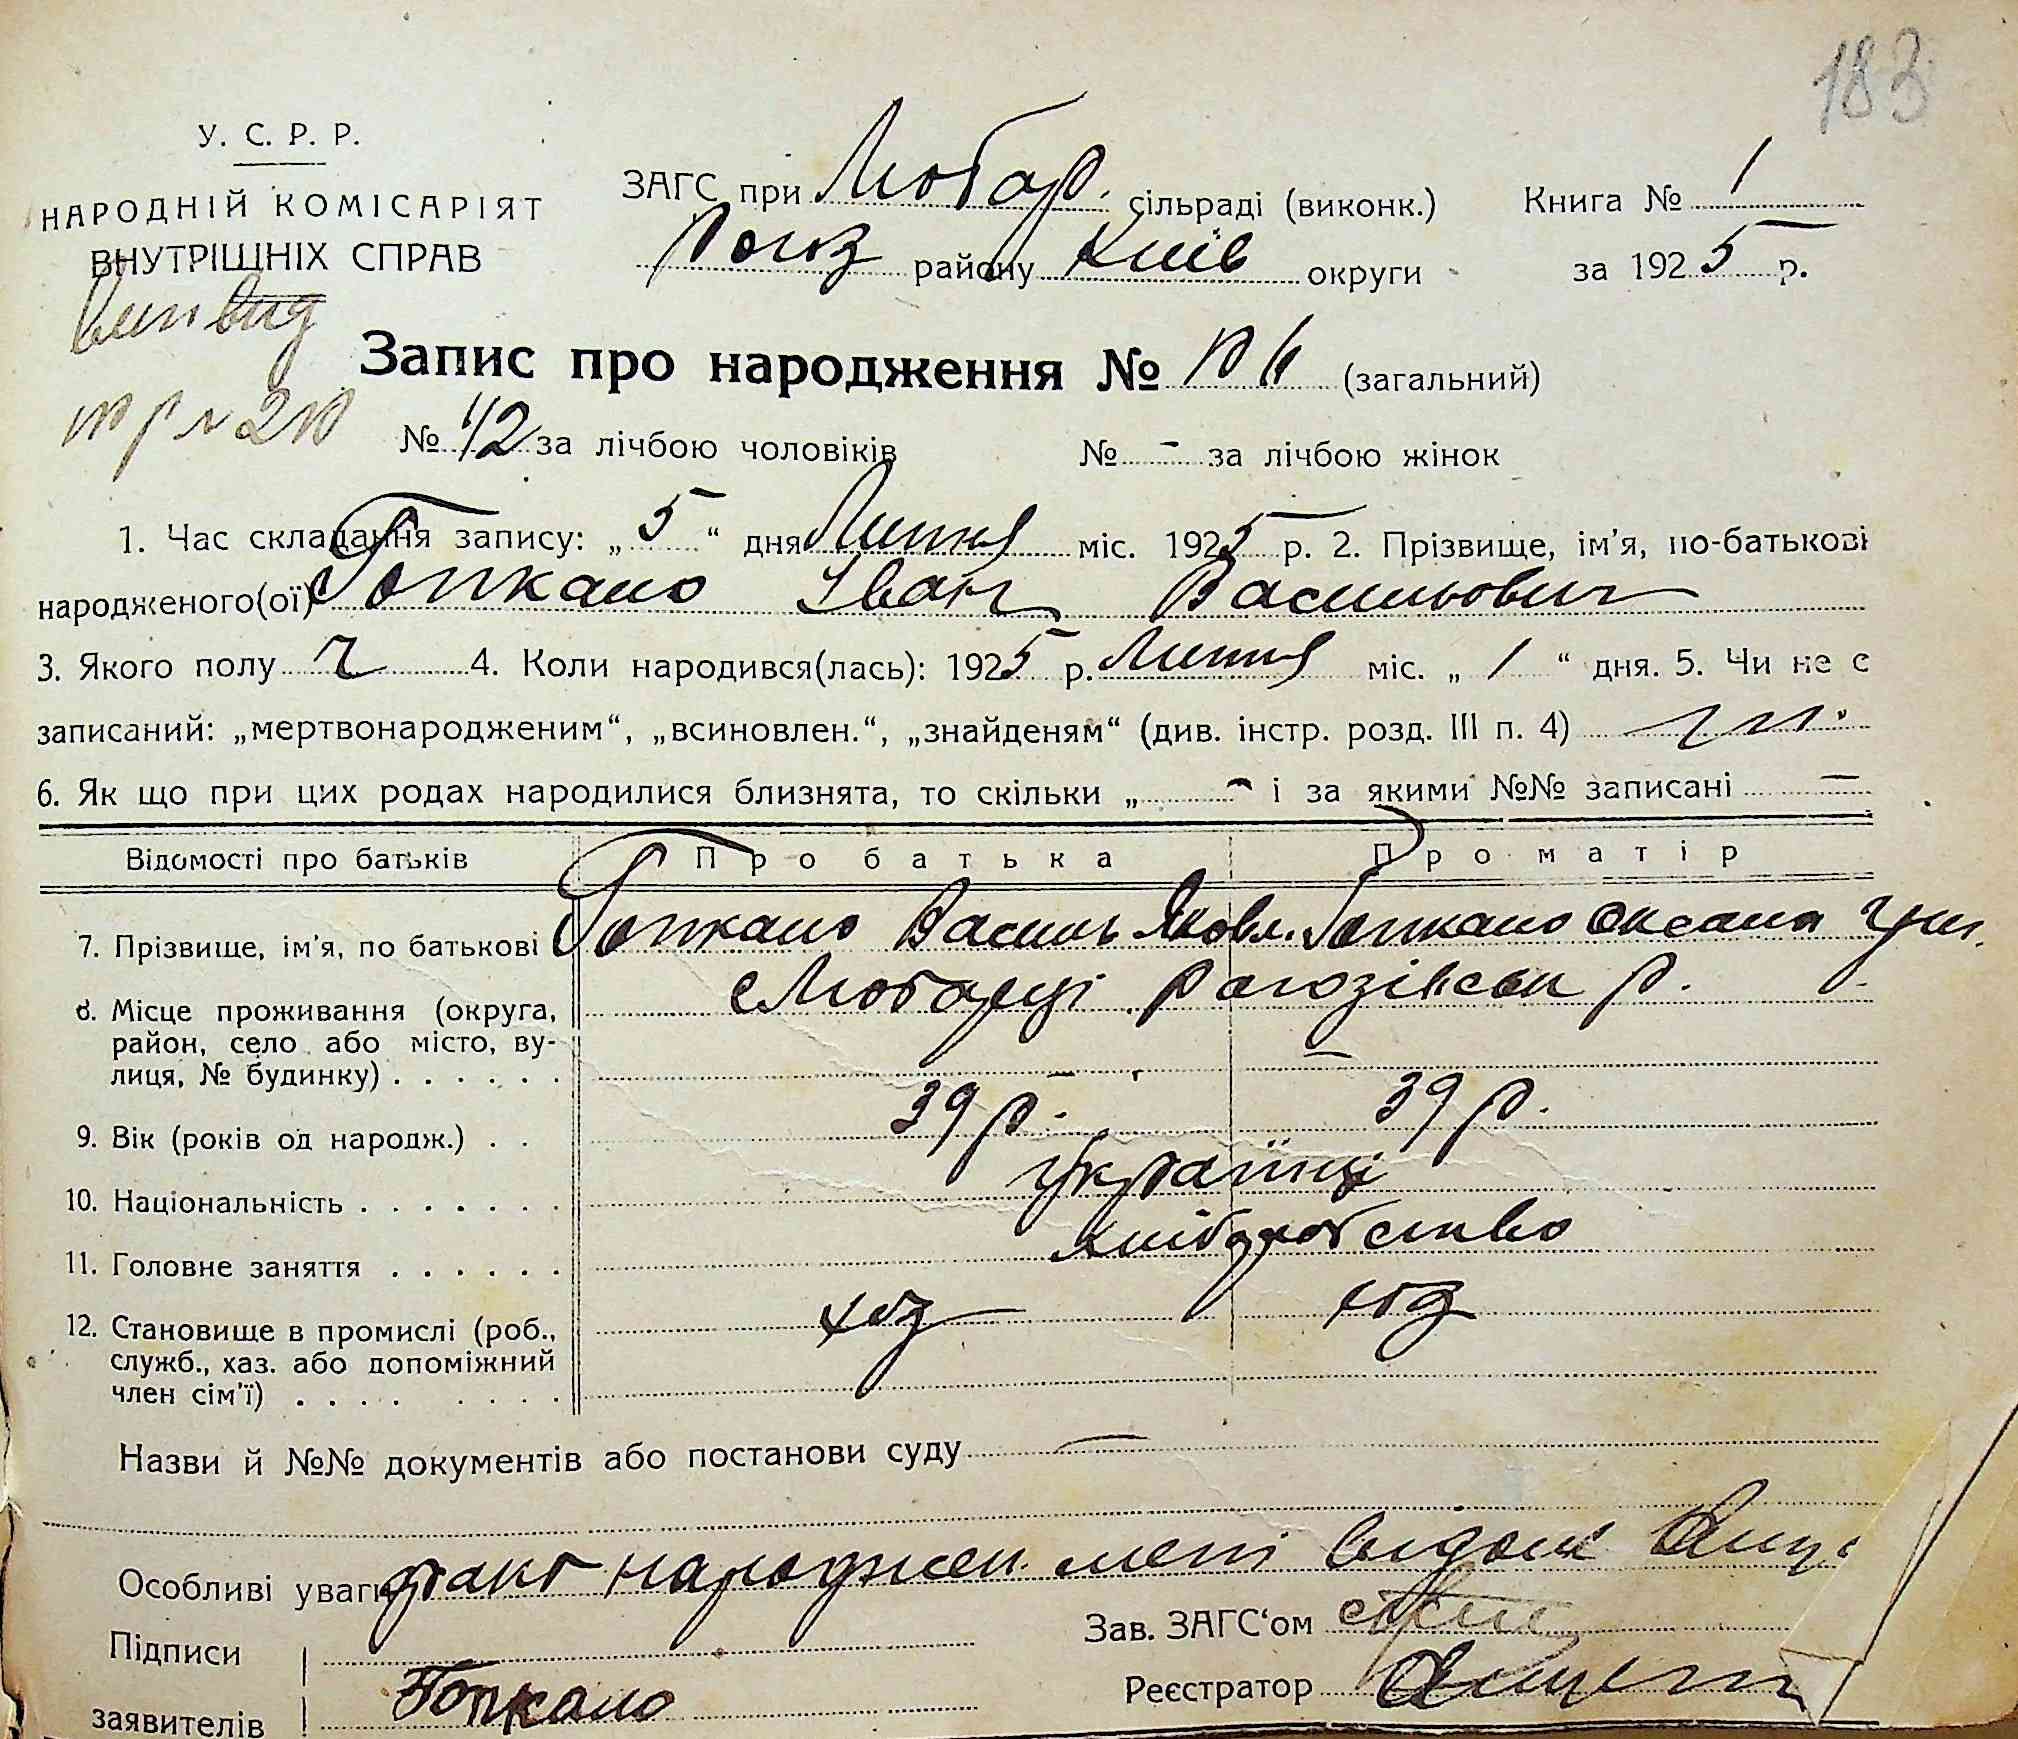 183
У. С. Р. Р.
НАРОДНІЙ КОМІСАРІЯТ
ВНУТРІШНІХ СПРАВ
ЗАГС при Любар. сільраді (виконк.) Книга № 1
Рогоз району Київ округи за 1925 р.
Запис про народження № (загальний)
№ 42 за лічбою чоловіків № - за лічбою жінок
1. Час складання запису: „5“ дня Липня міс. 1925 р. 2. Прізвище, ім'я, по-батькові
народженого(ої) Гопкало Іван Васильович
3. Якого полу ч 4. Коли народився(лась): 1925 р. Липня міс. „1“ дня. 5. Чи не є
записаний: „мертвонародженим“, „всиновлен.“, „знайденям“ (див. інстр. розд. III п. 4)
6. Як що при цих родах народилися близнята, то скільки „ - і за якими №№ записані —
Відомості про батьків Про батька Про матір
7. Прізвище, ім'я, по батькові Гопкало Василь Яковл. Гопкало Оксана
8. Місце проживання (округа, с Любарці Рогозівськ р.
район, село або місто, ву-
лиця, № будинку) . . . . . . — —
9. Вік (років од народж.) . . 39 р. 39 р.
10. Національність . . . . . . . українці
11. Головне заняття . . . . . . хліборобство
12. Становище в промислі (роб., хоз хоз
служб., хаз. або допоміжний
член сім'ї) . . . . . . . .
Назви й №№ документів або постанови суду —
Особливі уваги факт народжен. мені відом
Підписи Зав. ЗАГС'ом
заявителів Гопкало Реєстратор